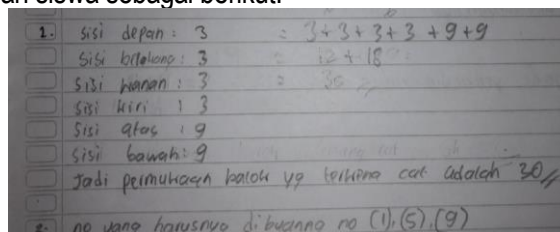 an siswa sebagai berikut.
1. sisi depan : 3 = 3+3+3+3+9+9
sisi belakang : 3 = 12 + 18
sisi kanan : 3 = 30 //
sisi kiri : 3
sisi atas : 9
sisi bawah : 9
Jadi permukaan balok yg terkena cat adalah 30 //
2. no yang harusnya dibuang no (1), (5), (9)